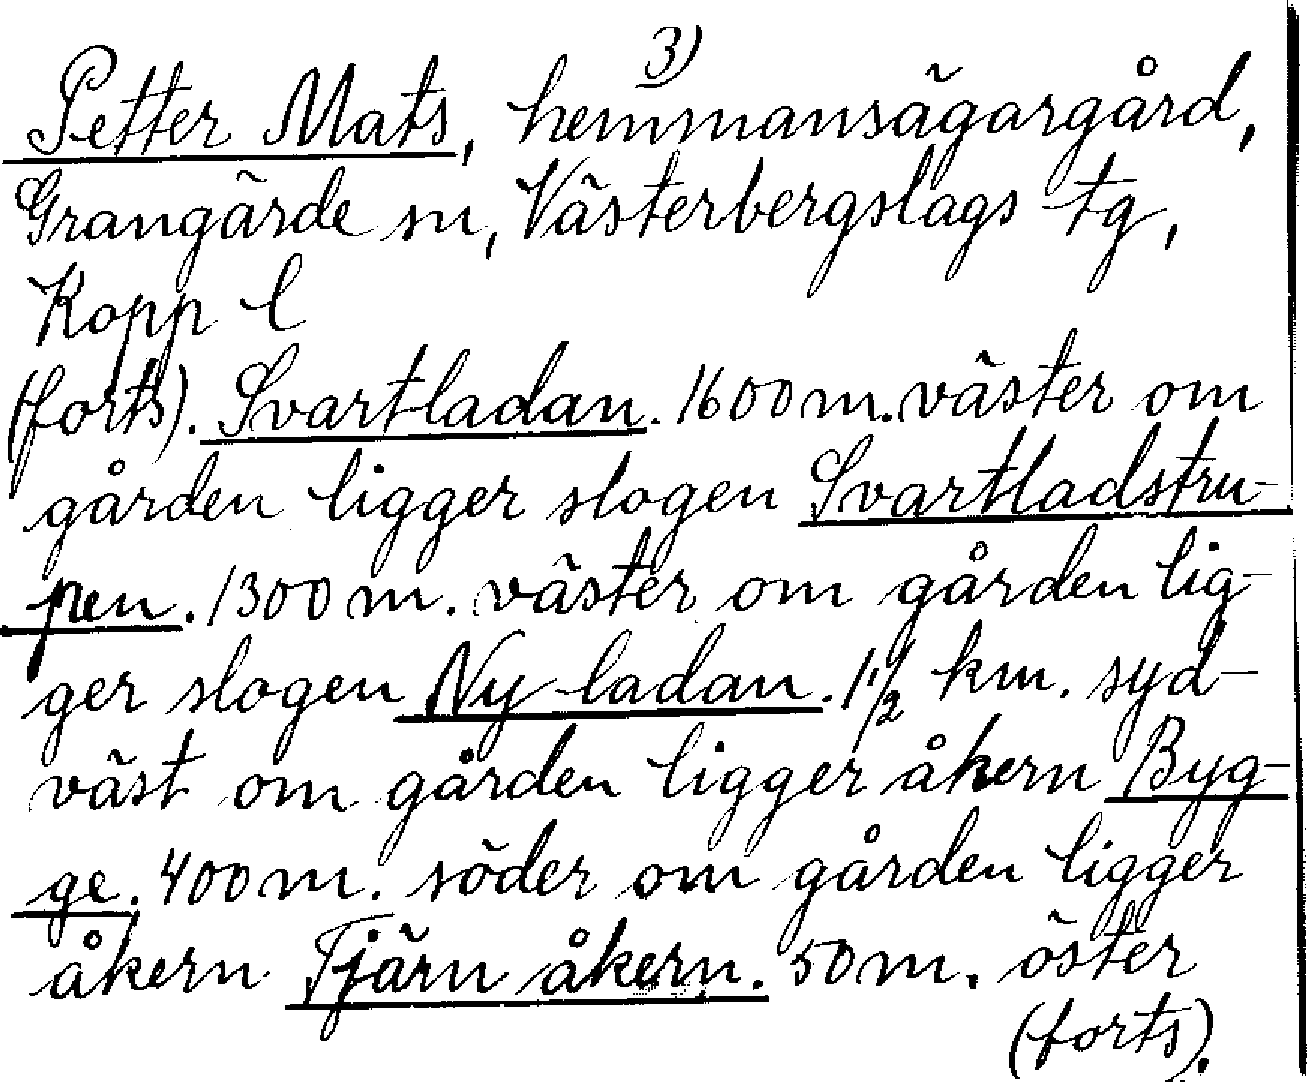 3)
Petter Mats, hemmansägargård,
Grangärde sn, Västerbergslags tg,
Kopp l
(forts). Svartladan. 1600 m. väster om
gården ligger slogen Svartladstru-
pen. 1300 m. väster om gården lig-
ger slogen Ny-ladan. 1 1/2 km. syd-
väst om gården ligger åkern Byg-
ge. 400 m. söder om gården ligger
åkern Tjärn åkern. 50 m. öster
(forts).